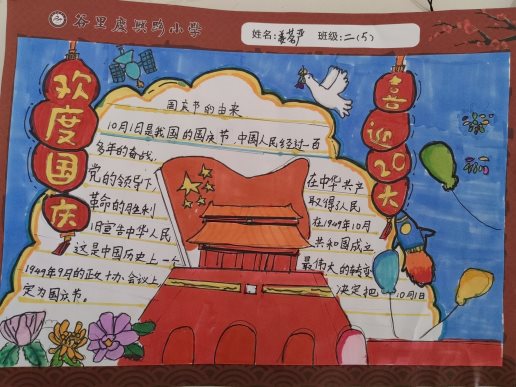 谷里庆兴路小学
姓名: 班级:二(5)
欢度国庆
喜迎20大
国庆节的由来
10月1日是我国的国庆节,中国人民经过一百
多年的奋战,
在中华共产
党的领导下,
取得了人民
革命的胜利
在1949年10月
1日宣告中华人民
共和国成立
这是中国历史上一个
最伟大的转变
1949年9月的 会议上
决定把10月1日
定为国庆节。